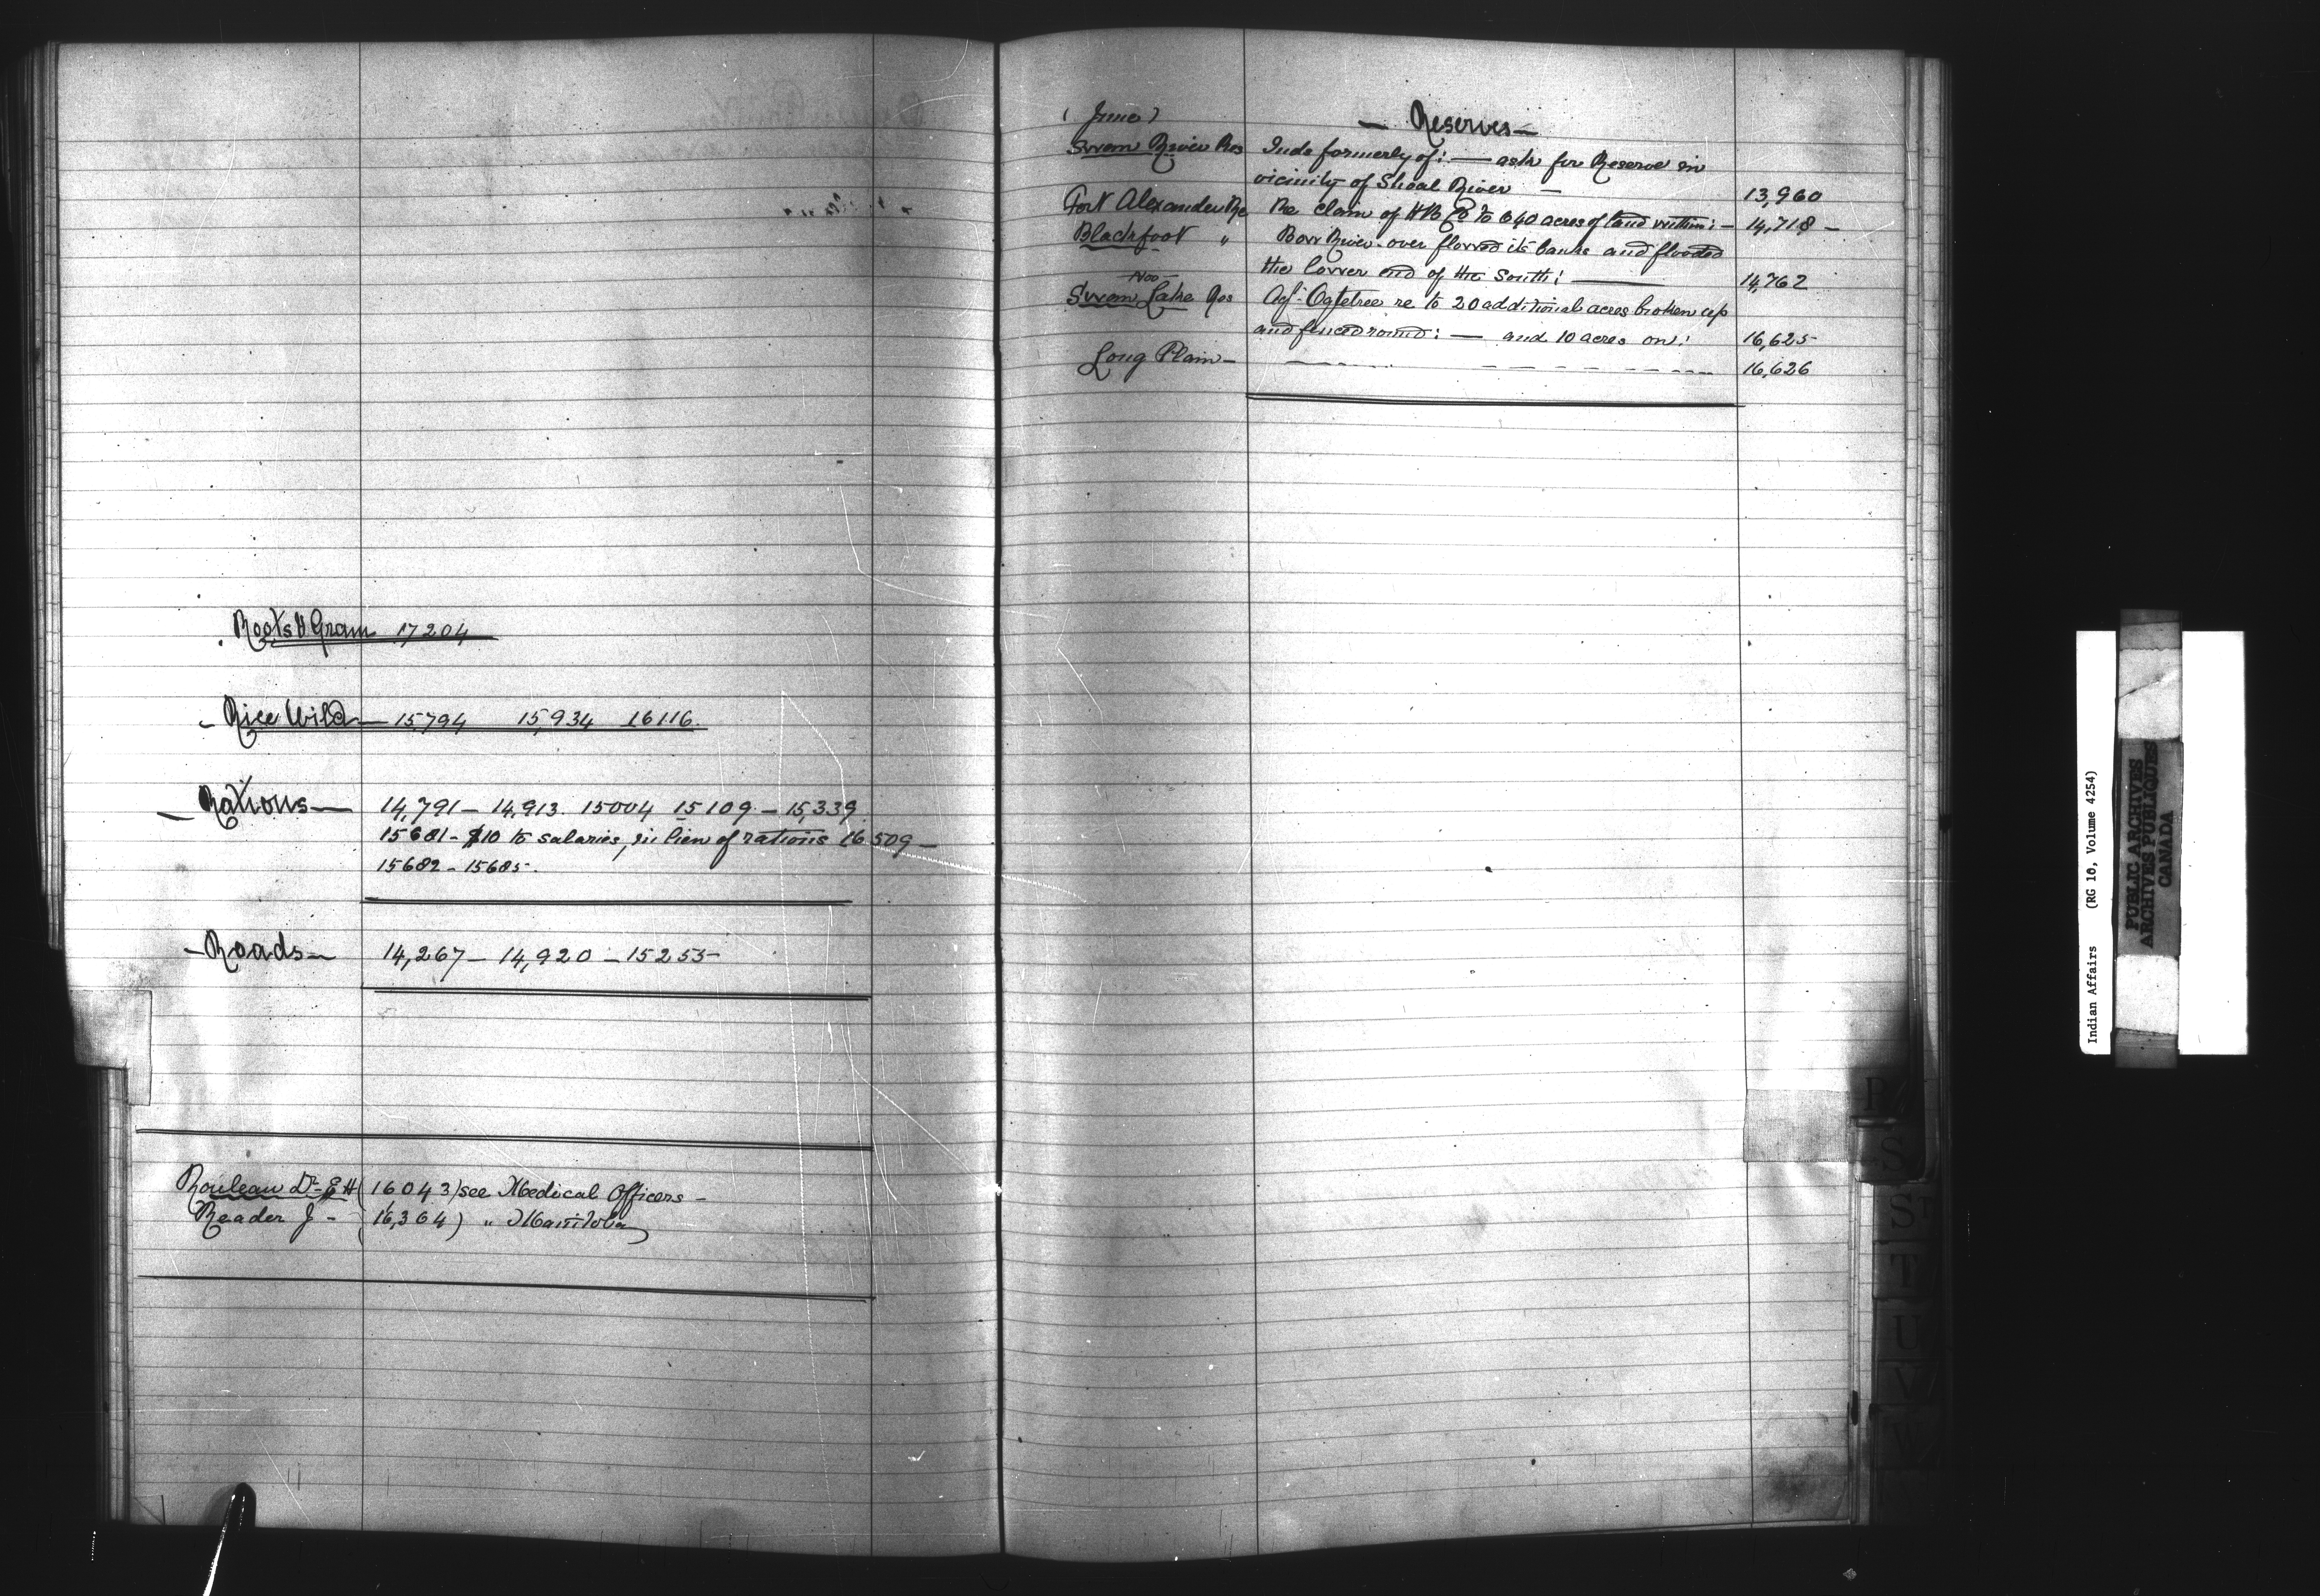 Roots & Grain 17204
- Rice Wild - 15,794 15,934 16116.
- Rations - 14,791 - 14,913. 15004 15109 - 15,339
15681 - $10 to salaries, in lieu of rations 16509 -
15682 - 15685.
- Roads - 14,267 - 14,920 - 15255 -
Rouleau Dr E H (16043) see Medical Officers -
Reader J - (16,364) " Manitoba
(June)
- Reserves -
Swan River Res Inds formerly of: - ask for Reserve in
vicinity of Shoal River - 13,960
Fort Alexander Re Re claim of HB Co to 640 acres of land within: - 14,718 -
Blackfoot " Bow River over flowed its banks and flooded
the lower end of the South: - 14,762
Swan Lake Res Agt Ogletree re to 20 additional acres broken up
and fenced round: - and 10 acres on: 16,625
Long Plain - 16,626
Indian Affairs (RG 10, Volume 4254)
PUBLIC ARCHIVES
ARCHIVES PUBLIQUES
CANADA
R
S
ST
T
U
V
W